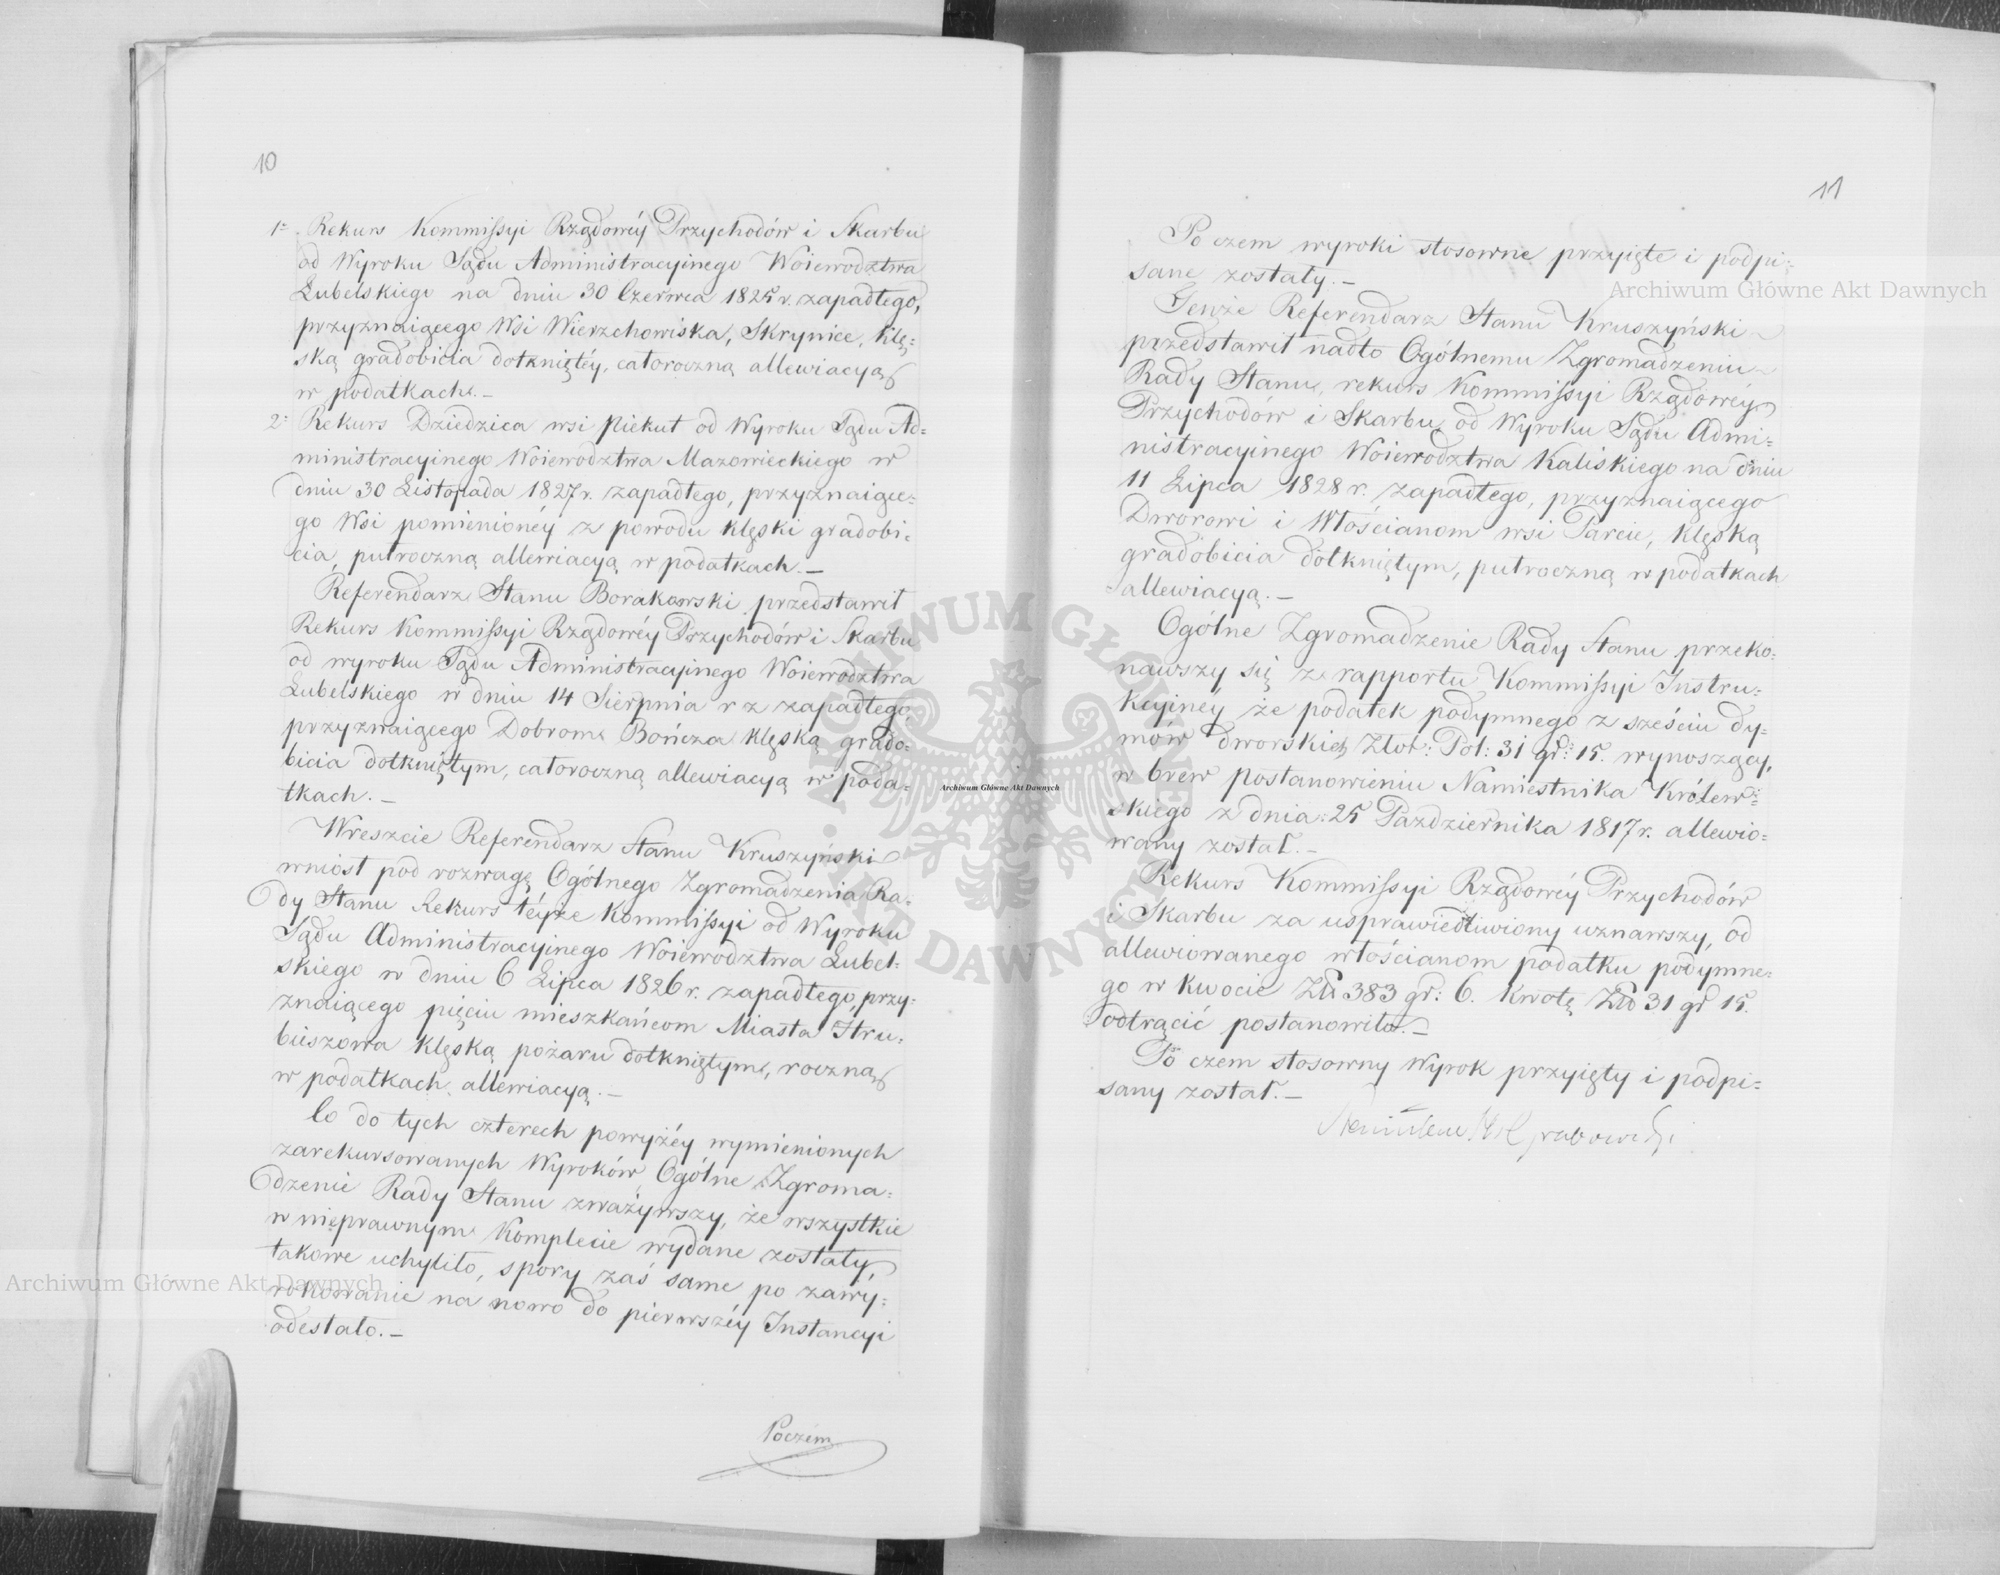 10
1° Rekurs Kommissyi Rządowéy Przychodów i Skarbu
od Wyroku Sądu Administracyinego Woiewodztwa
Lubelskiego na dniu 30 Czerwca 1825 r. zapadłego,
przyznaiącego Wsi Wierzchowiska, Skrynice, klę=
ską gradobicia dotkniętéy, całoroczną allewiacyą
w podatkach.–
2° Rekurs Dziedzica wsi Piekut od Wyroku Sądu Ad=
ministracyinego Woiewodztwa Mazowieckiego w
dniu 30 Listopada 1827 r. zapadłego, przyznaiące=
go Wsi pomienionéy z powodu klęski gradobi=
cia, półroczną allewiacyą w podatkach.–
Referendarz Stanu Borakowski przedstawił
Rekurs Kommissyi Rządowéy Przychodów i Skarbu
od wyroku Sądu Administracyinego Woiewodztwa
Lubelskiego w dniu 14 Sierpnia r z zapadłego,
przyznaiącego Dobrom Bończa klęską grado=
bicia dotkniętym, całoroczną allewiacyą w poda=
tkach.–
Wreszcie Referendarz Stanu Kruszyński
wniósł pod rozwagę Ogólnego Zgromadzenia Ra=
dy Stanu Rekurs téyże Kommissyi od Wyroku
Sądu Administracyinego Woiewodztwa Lubel=
skiego w dniu 6 Lipca 1826 r. zapadłego, przy=
znaiącego pięciu mieszkańcom Miasta Hru=
bieszowa klęską pożaru dotkniętym, roczną
w podatkach allewiacyą.–
Co do tych czterech powyżéy wymienionych
zarekursowanych Wyroków, Ogólne Zgroma=
dzenie Rady Stanu zważywszy, że wszystkie
w nieprawnym Komplecie wydane zostały,
takowe uchyliło, spory zaś same po zawy=
rokowanie na nowo do pierwszéy Instancyi
odesłało.–
Poczém
11
Po czem wyroki stosowne przyięte i podpi=
sane zostały.–
Tenże Referendarz Stanu Kruszyński
przedstawił nadto Ogólnemu Zgromadzeniu
Rady Stanu, rekurs Kommissyi Rządowéy
Przychodów i Skarbu, od Wyroku Sądu Admi=
nistracyinego Woiewodztwa Kaliskiego na dniu
11 Lipca 1828 r. zapadłego, przyznaiącego
Dworowi i Włościanom wsi Parcie, klęską
gradobicia dotkniętym, półroczną w podatkach
allewiacyą.–
Ogólne Zgromadzenie Rady Stanu przeko=
nawszy się z rapportu Kommissyi Instru=
kcyinéy że podatek podymnego z sześciu dy=
mów dworskich Złot: Pol: 31 gr: 15. wynoszący,
w brew postanowieniu Namiestnika Królew=
skiego z dnia 25 Pazdziernika 1817 r. allewio=
wany został.–
Rekurs Kommissyi Rządowéy Przychodów
i Skarbu za usprawiedliwiony uznawszy, od
allewiowanego włościanom podatku podymne=
go w kwocie Zło 383 gr: 6. kwotę Zło 31 gr 15.
odtrącić postanowiło.–
Po czem stosowny Wyrok przyięty i podpi=
sany został.–
Grabowski
Archiwum Główne Akt Dawnych
Archiwum Główne Akt Dawnych
Archiwum Główne Akt Dawnych
ARCHIWUM GŁÓWNE AKT DAWNYCH